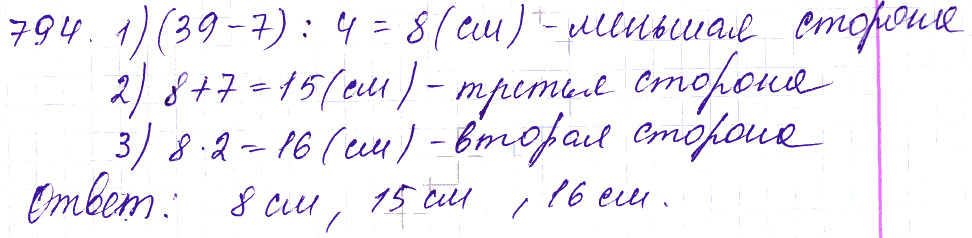 794. 1) (39-7) : 4 = 8 (см) - меньшая сторона
2) 8+7=15(см) - третья сторона
3) 8·2=16 (см) - вторая сторона
Ответ: 8 см, 15 см, 16 см.